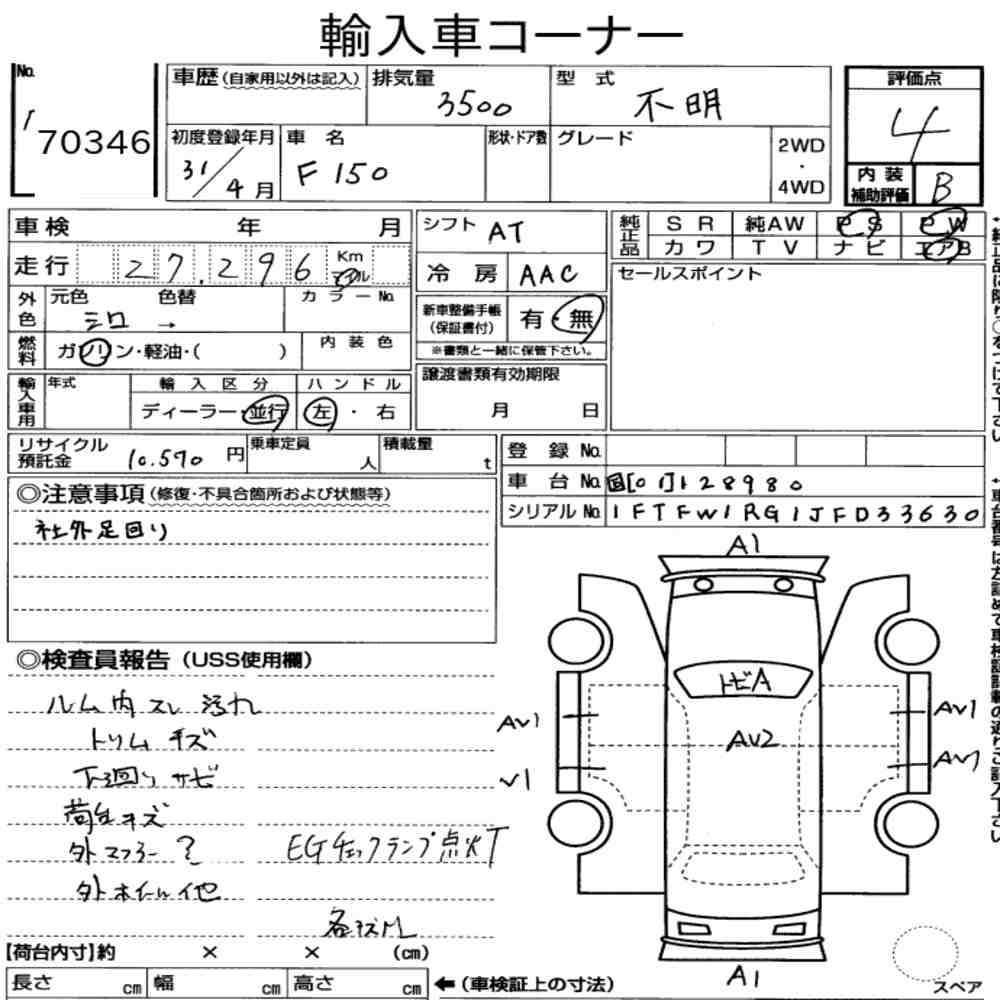 輸入車コーナー
No. 170346
車歴 (自家用以外は記入)
排気量 3500
型式 不明
評価点 4
初度登録年月 31/4月
車名 F150
形状・ドア数
グレード
2WD・4WD
内装補助評価 B
車検 年 月
シフト AT
純正品 SR 純AW PS PW
カワ TV ナビ エアB
走行 27,296 Km マイル
冷房 AAC
セールスポイント
外色 元色 シロ 色替 → カラーNo.
新車整備手帳(保証書付) 有・無
※書類と一緒に保管下さい。
燃料 ガソリン・軽油・( ) 内装色
譲渡書類有効期限
月 日
輸入車用 年式 輸入区分 ハンドル
ディーラー・並行 左・右
リサイクル預託金 10,570円
乗車定員 人
積載量 t
登録No.
車台No. 国[01]128980
シリアルNo. 1FTFW1RG1JFD33630
◎注意事項 (修復・不具合箇所および状態等)
社外足回り
◎検査員報告 (USS使用欄)
ルーム内スレ汚れ
トリムキズ
下廻りサビ
荷台キズ
外マフラー?
EGチェックランプ点灯
外ホイール他
A1
トビA
AV1
AV2
AV1
V1
A1
【荷台内寸】約 × × (cm)
長さ cm 幅 cm 高さ cm
←(車検証上の寸法)
スペア